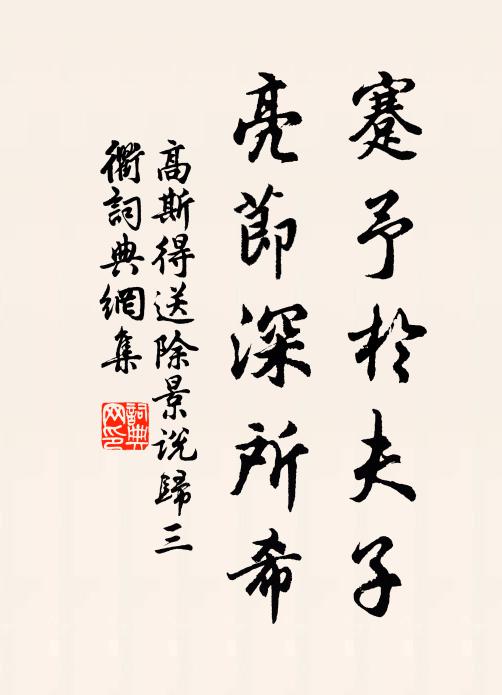 蹇予於夫子
亮節深所希
高斯得送除景说歸三
衢詞典網集
詞典网印